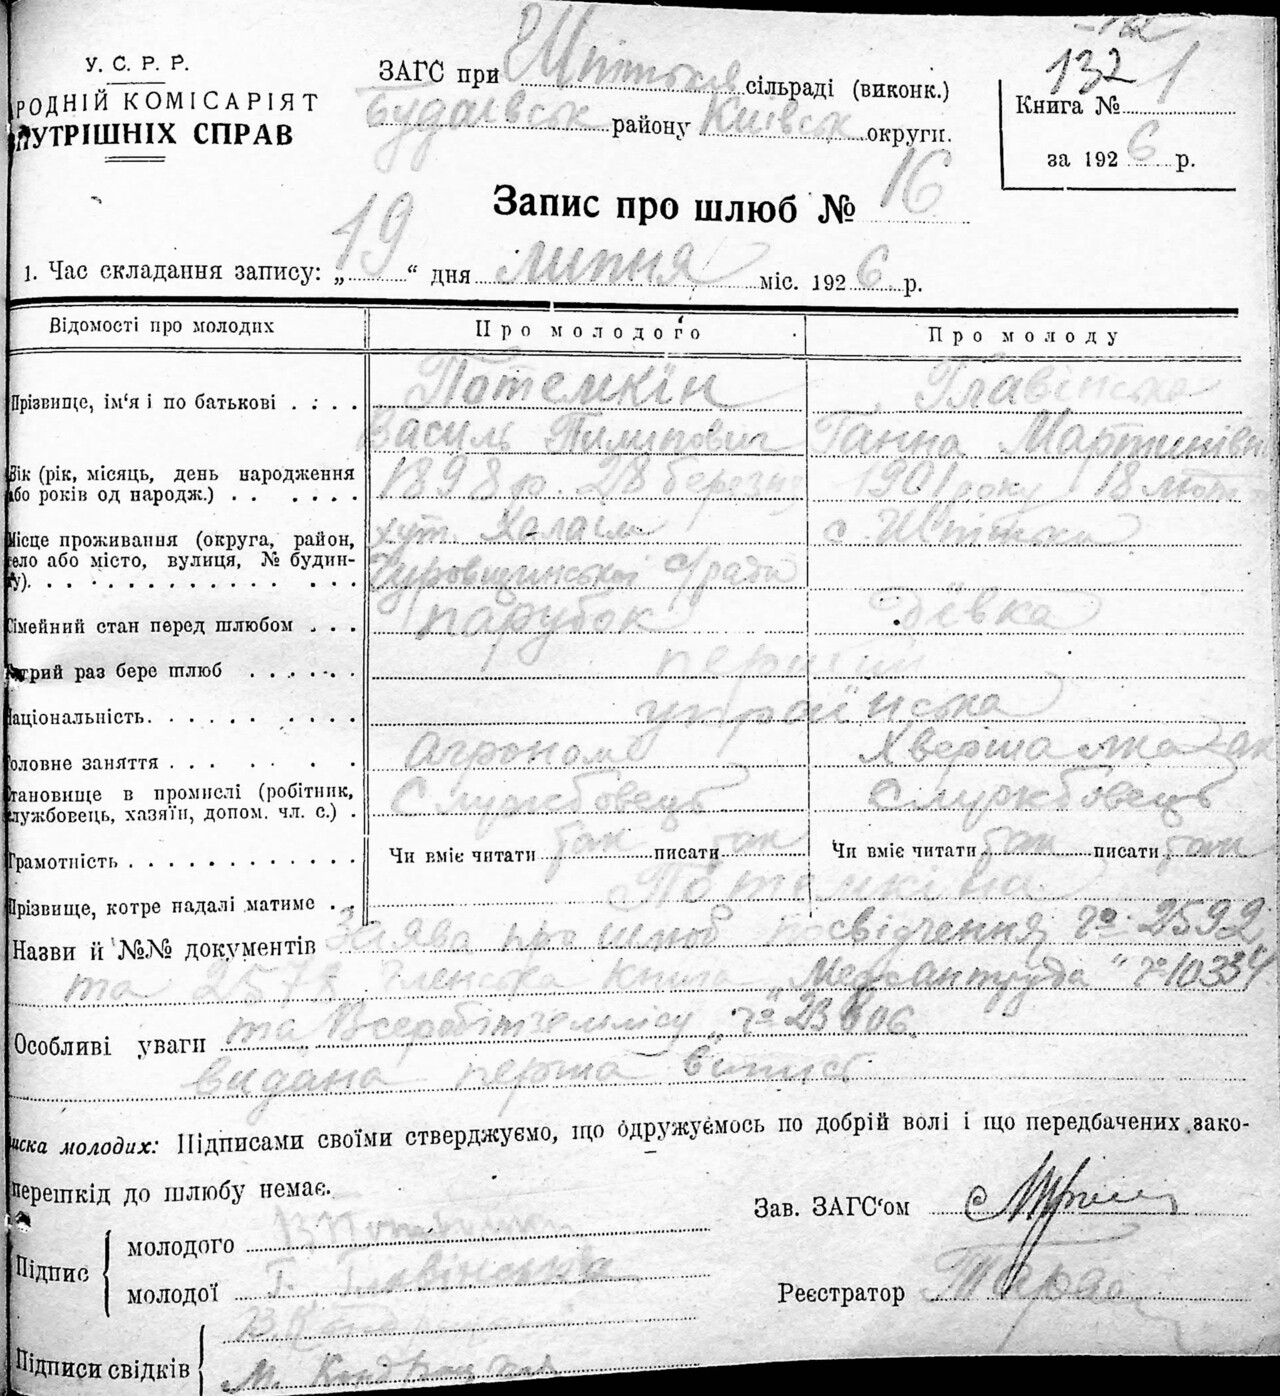 У. С. Р. Р.
РОДНІЙ КОМІСАРІЯТ
УТРІШНІХ СПРАВ
ЗАГС при Шпітьки сільраді (виконк.)
Будаївськ району Київськ округи.
132 1
Книга №
за 1926 р.
Запис про шлюб № 16
1. Час складання запису: „19“ дня липня міс. 1926 р.
Відомості про молодих Про молодого Про молоду
Прізвище, ім'я і по батькові Потемкін Главінська
Василь Пилипович Ганна Мартинівн
Вік (рік, місяць, день народження 1898 р. 28 березня 1901 року 18 лютого
або років од народж.)
Місце проживання (округа, район, хут. с. Шпітьки
село або місто, вулиця, № будин-
у) с/ради
Сімейний стан перед шлюбом парубок дєвка
Котрий раз бере шлюб перший
Національність українська
Головне заняття агроном
Становище в промислі (робітник, Службовець Службовець
службовець, хазяїн, допом. чл. с.)
Грамотність Чи вміє читати так писати так Чи вміє читати так писати так
Прізвище, котре надалі матиме Потемкіна
Назви й №№ документів Заява про шлюб посвідчення № 2592
та членська книга „Медсантруда“ № 10334
Особливі уваги та Всеробітземлісу № 23806
видана перша
иска молодих: Підписами своїми стверджуємо, що одружуємось по добрій волі і що передбачених зако-
перешкід до шлюбу немає.
Зав. ЗАГС'ом
Підпис молодого
молодої Г. Главінська
Реєстратор
Підписи свідків
М.